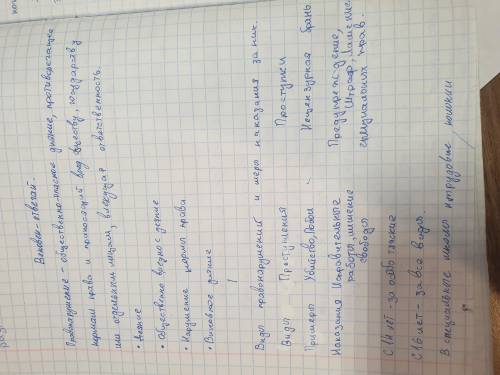 Виновен - отвечай.
Правонарушение - общественно-опасное деяние, противоречащее
нормам права и приносящий вред обществу, государству
или отдельным лицам, влекущая ответственность.
• Деяние
• Общественно вредное деяние
• Нарушение нормы права
• Виновное деяние
Виды правонарушений и меры наказания за них.
Виды Проступления Проступки
Примеры Убийство, Побои Нецензурная брань
Наказания Исправительное Предупреждение,
работы, лишение Штраф, Лишение
свободы специальных прав.
С 14 лет - за особо тяжкие
С 16 лет - за все виды
В специальные школы нетрудовые